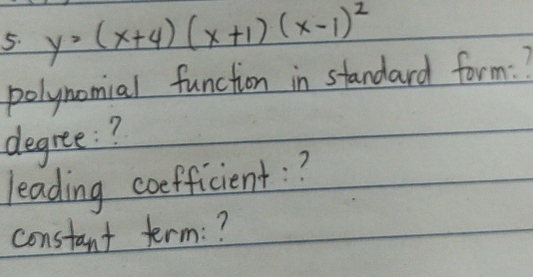 5. y = (x+4) (x+1) (x-1)²
polynomial function in standard form:?
degree:?
leading coefficient:?
constant term:?